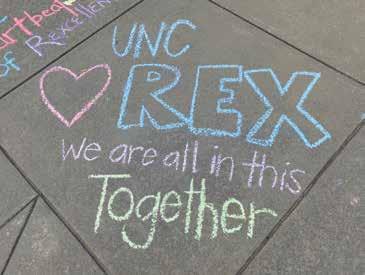 heartbeat
of Rexcellence
UNC
REX
We are all in this
Together